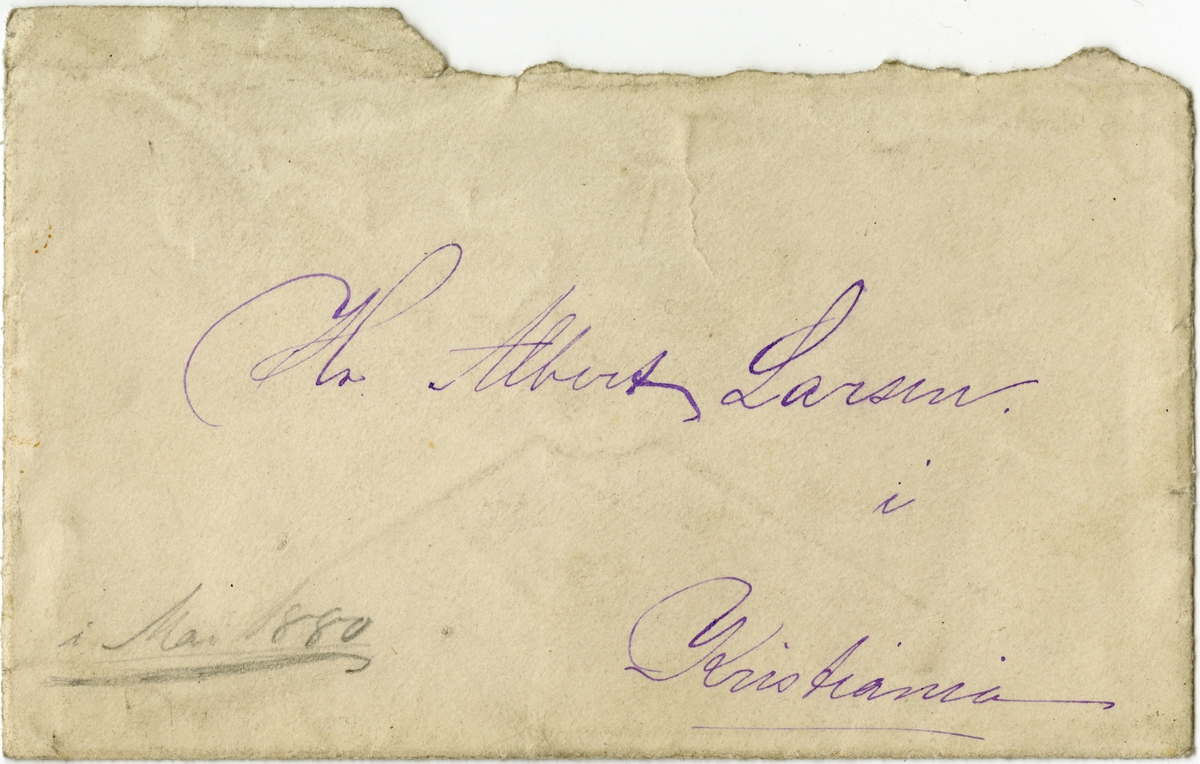 Hr Albert Larsen.
i
Kristiania
i Mai 1880